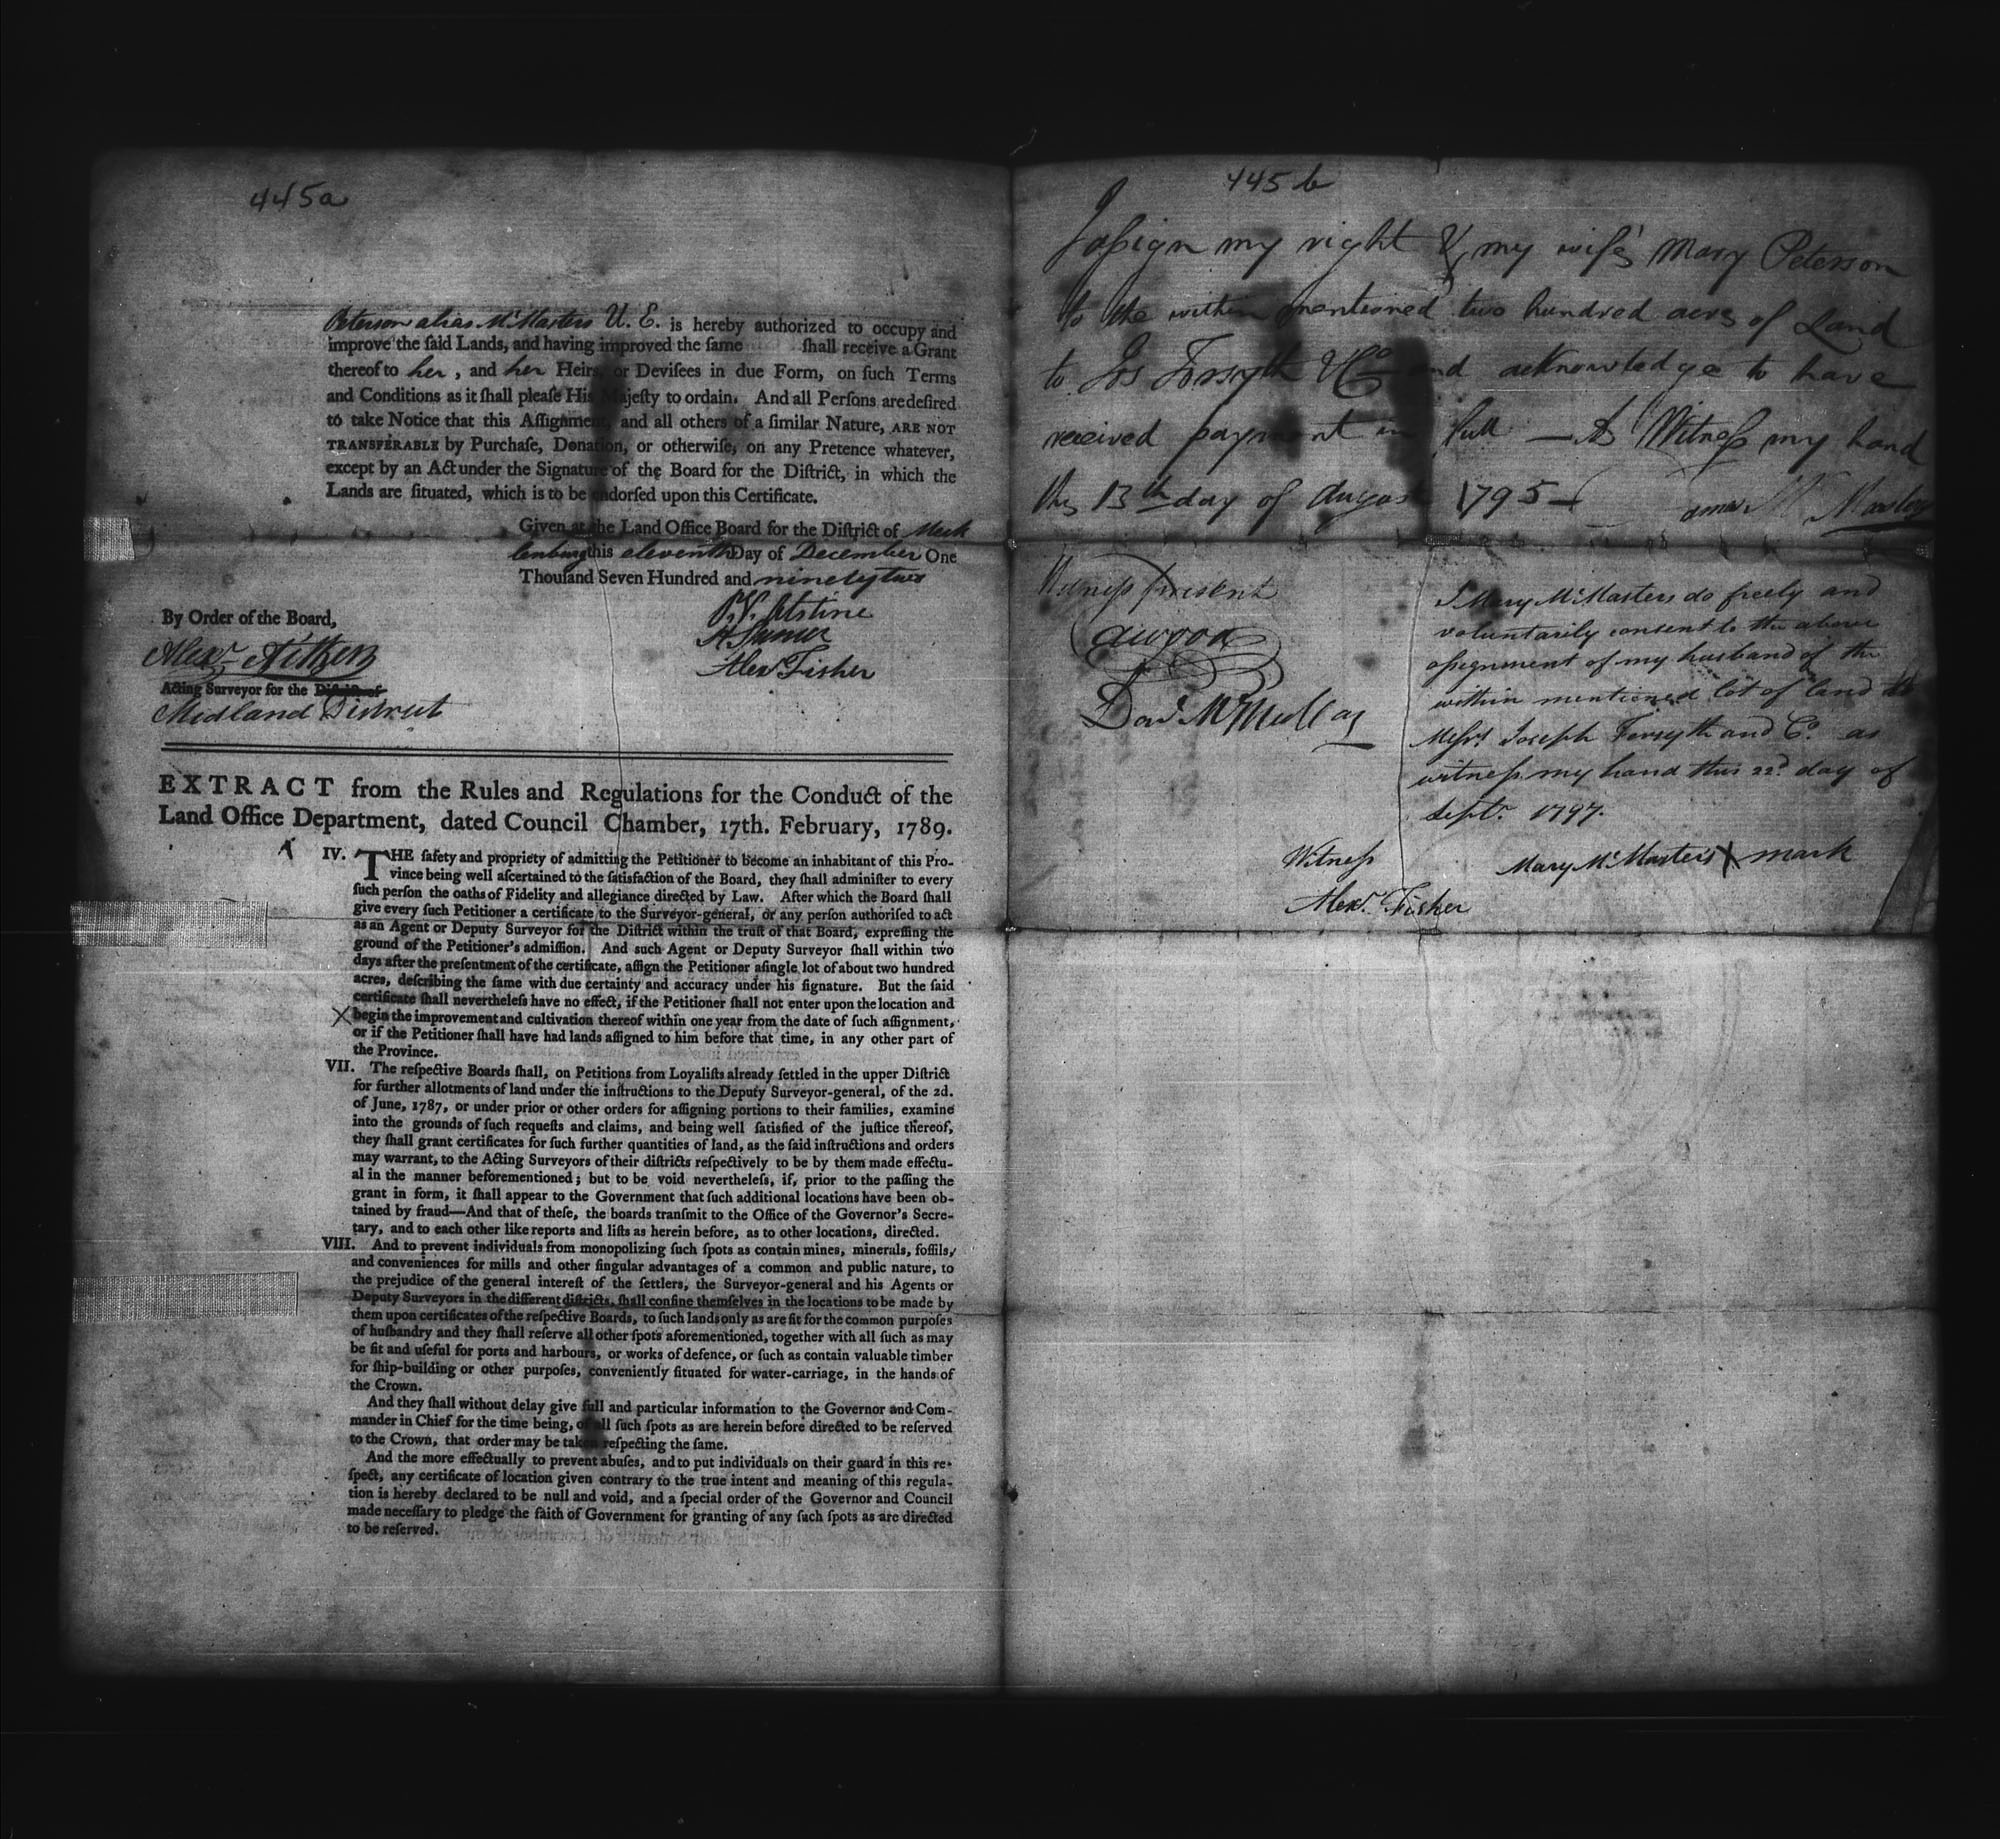 445a
Peterson alias McMasters U. E. is hereby authorized to occupy and
improve the ſaid Lands, and having improved the ſame ſhall receive a Grant
thereof to her, and her Heirs, or Deviſees in due Form, on ſuch Terms
and Conditions as it ſhall pleaſe His Majeſty to ordain. And all Perſons are deſired
to take Notice that this Aſſignment, and all others of a ſimilar Nature, ARE NOT
TRANSFERABLE by Purchaſe, Donation, or otherwiſe, on any Pretence whatever,
except by an Act under the Signature of the Board for the Diſtrict, in which the
Lands are ſituated, which is to be endorſed upon this Certificate.
Given at the Land Office Board for the Diſtrict of Meck
lenburg this eleventh Day of December One
Thouſand Seven Hundred and ninety two
By Order of the Board,
Alexr. Aitken
Acting Surveyor for the Diſtrict of
Midland District
P. V. Alstine
H Spencer
Alexr Fisher
EXTRACT from the Rules and Regulations for the Conduct of the
Land Office Department, dated Council Chamber, 17th. February, 1789.
IV. THE ſafety and propriety of admitting the Petitioner to become an inhabitant of this Pro-
vince being well aſcertained to the ſatisfaction of the Board, they ſhall adminiſter to every
ſuch perſon the oaths of Fidelity and allegiance directed by Law. After which the Board ſhall
give every ſuch Petitioner a certificate to the Surveyor-general, or any perſon authoriſed to act
as an Agent or Deputy Surveyor for the Diſtrict within the truſt of that Board, expreſſing the
ground of the Petitioner's admiſſion. And ſuch Agent or Deputy Surveyor ſhall within two
days after the preſentment of the certificate, aſſign the Petitioner a ſingle lot of about two hundred
acres, deſcribing the ſame with due certainty and accuracy under his ſignature. But the ſaid
certificate ſhall nevertheleſs have no effect, if the Petitioner ſhall not enter upon the location and
X begin the improvement and cultivation thereof within one year from the date of ſuch aſſignment,
or if the Petitioner ſhall have had lands aſſigned to him before that time, in any other part of
the Province.
VII. The reſpective Boards ſhall, on Petitions from Loyaliſts already ſettled in the upper Diſtrict
for further allotments of land under the inſtructions to the Deputy Surveyor-general, of the 2d.
of June, 1787, or under prior or other orders for aſſigning portions to their families, examine
into the grounds of ſuch requeſts and claims, and being well ſatisfied of the juſtice thereof,
they ſhall grant certificates for ſuch further quantities of land, as the ſaid inſtructions and orders
may warrant, to the Acting Surveyors of their diſtricts reſpectively to be by them made effectu-
al in the manner beforementioned; but to be void nevertheleſs, if, prior to the paſſing the
grant in form, it ſhall appear to the Government that ſuch additional locations have been ob-
tained by fraud—And that of theſe, the boards tranſmit to the Office of the Governor's Secre-
tary, and to each other like reports and liſts as herein before, as to other locations, directed.
VIII. And to prevent individuals from monopolizing ſuch ſpots as contain mines, minerals, foſſils,
and conveniences for mills and other ſingular advantages of a common and public nature, to
the prejudice of the general intereſt of the ſettlers, the Surveyor-general and his Agents or
Deputy Surveyors in the different diſtricts, ſhall confine themſelves in the locations to be made by
them upon certificates of the reſpective Boards, to ſuch lands only as are fit for the common purpoſes
of huſbandry and they ſhall reſerve all other ſpots aforementioned, together with all ſuch as may
be fit and uſeful for ports and harbours, or works of defence, or ſuch as contain valuable timber
for ſhip-building or other purpoſes, conveniently ſituated for water-carriage, in the hands of
the Crown.
And they ſhall without delay give full and particular information to the Governor and Com-
mander in Chief for the time being, of all ſuch ſpots as are herein before directed to be reſerved
to the Crown, that order may be taken reſpecting the ſame.
And the more effectually to prevent abuſes, and to put individuals on their guard in this re-
ſpect, any certificate of location given contrary to the true intent and meaning of this regula-
tion is hereby declared to be null and void, and a ſpecial order of the Governor and Council
made neceſſary to pledge the faith of Government for granting of any ſuch ſpots as are directed
to be reſerved.
445 b
I aſsign my right & my wife's Mary Peterson
to the within mentioned two hundred acres of Land
to Jos Forsyth & Co and acknowledge to have
received payment in full — As Witneſs my hand
this 13th day of August 1795 —
Witneſs Present
Dav.d McMullan
I Mary McMasters do freely and
voluntarily consent to the above
aſsignment of my husband of the
within mentioned lot of land to
Meſsrs Joseph Forsyth and Co. as
witneſs my hand this 22d. day of
Septr. 1797.
Witneſs
Mary McMasters X mark
Alexr. Fisher